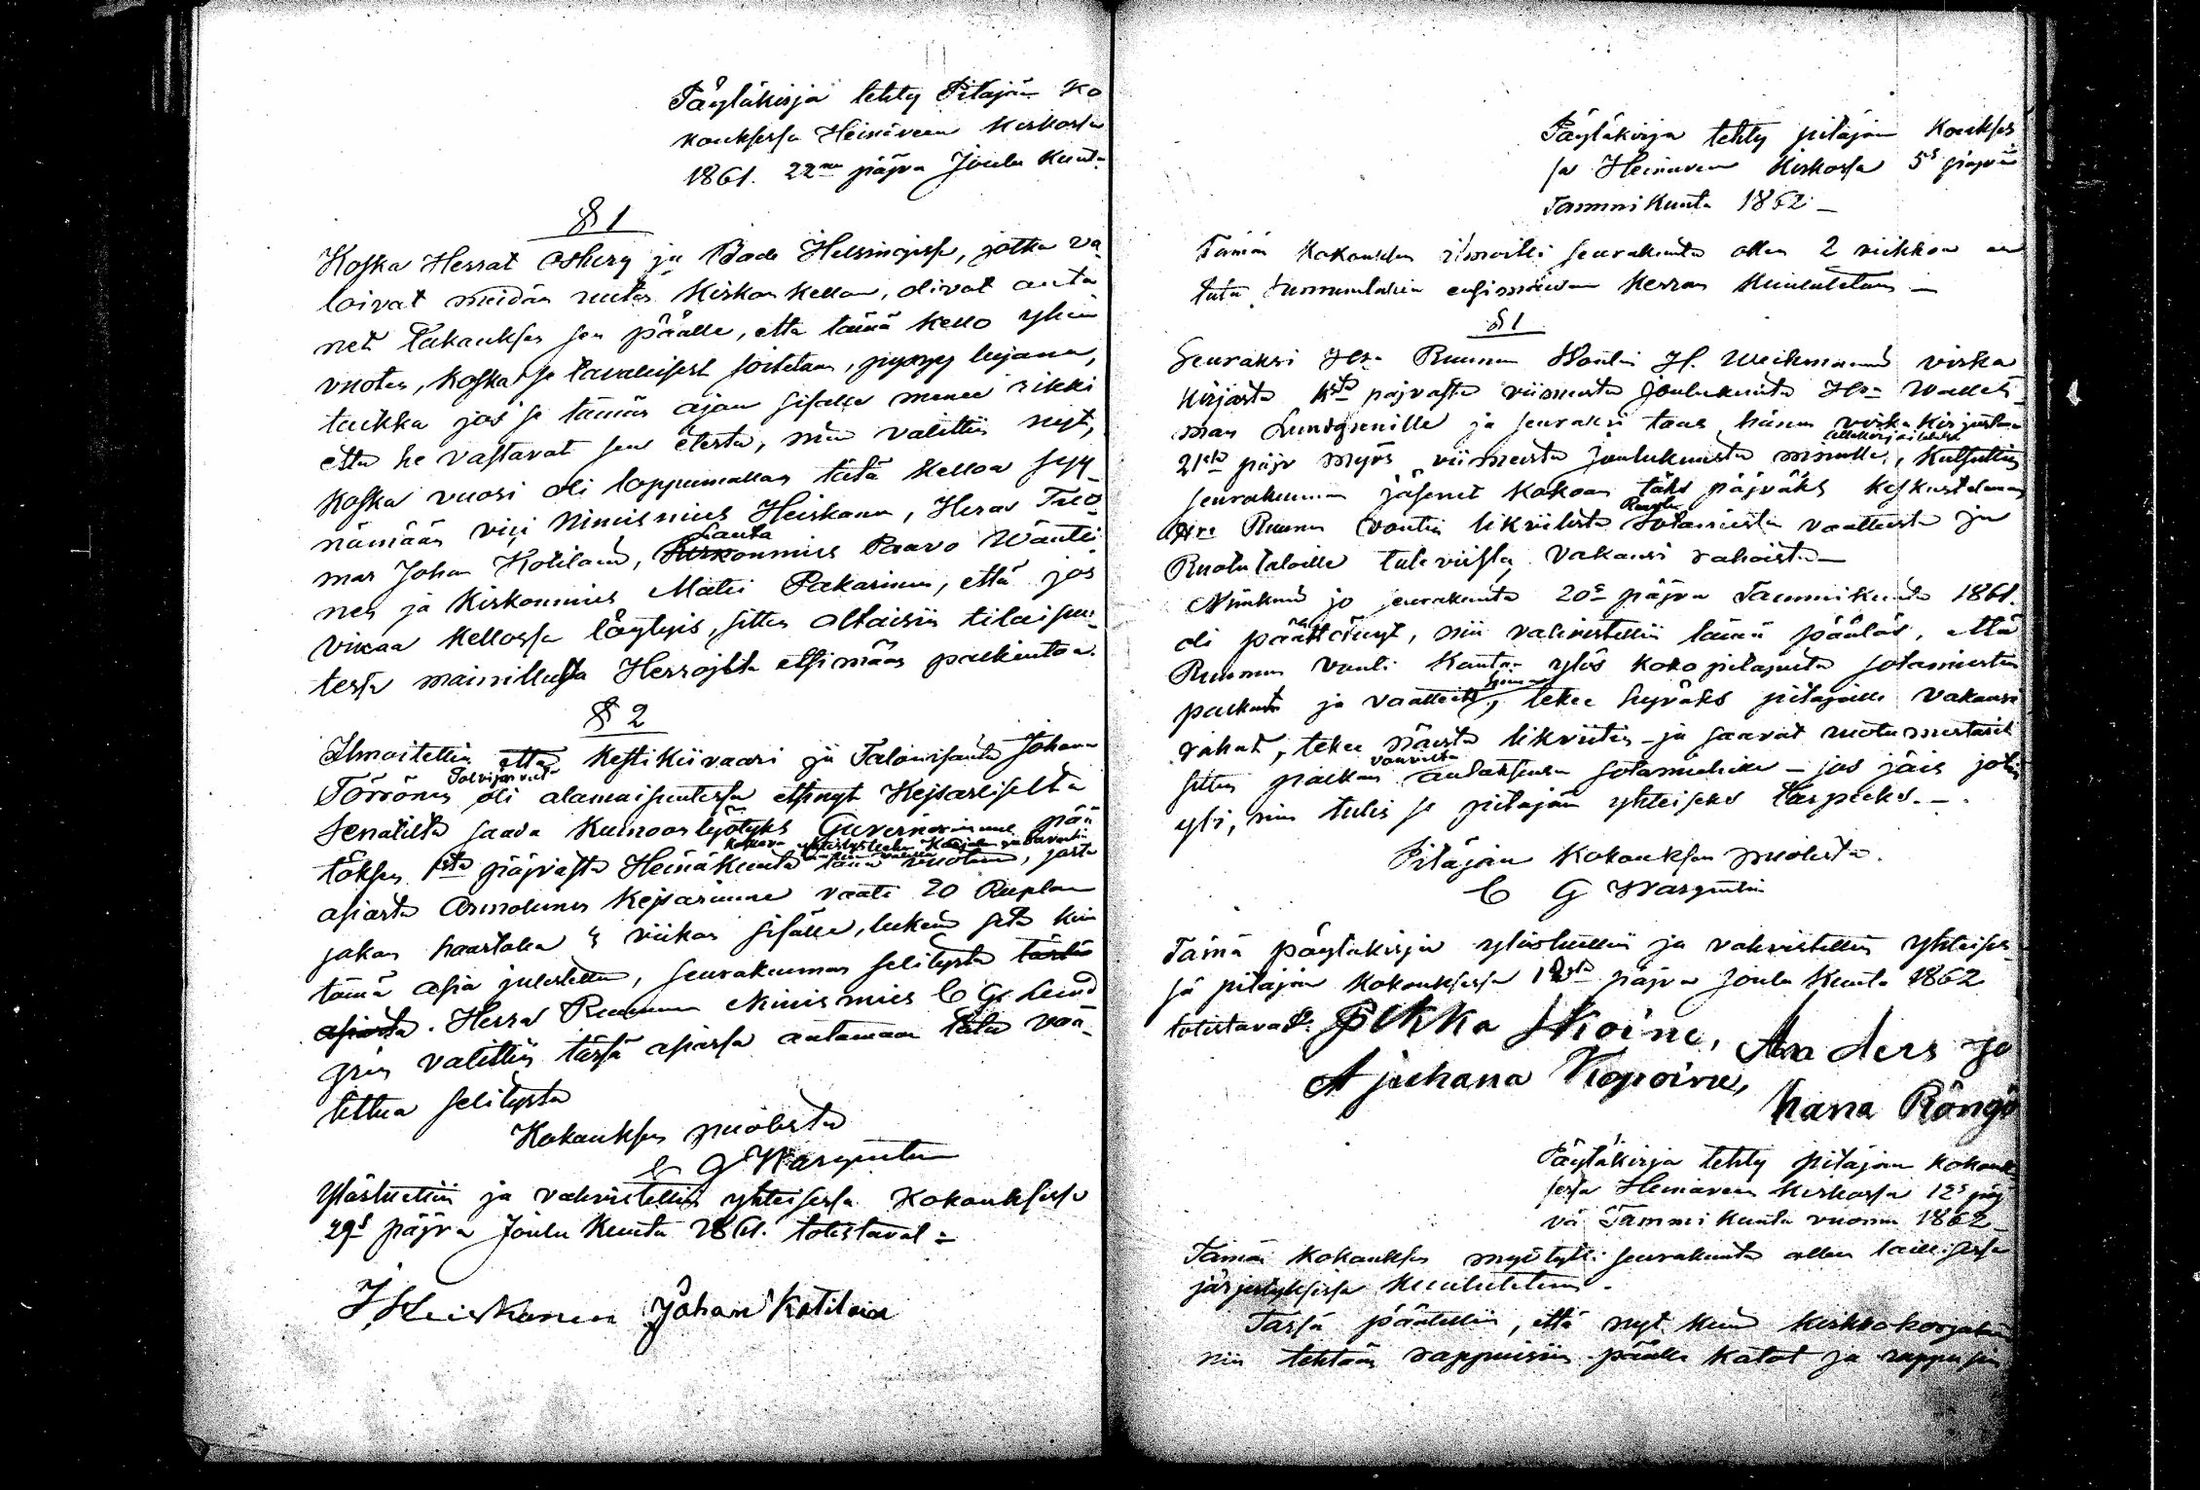 Pöytäkirja tehty Pitäjän Ko
kouksessa Heinäveen Kirkossa
1861. 22na päjvä Joulu Kuuta
§ 1
Koska Herrat Osberg ja Bade Helsingissä, jotka va
loivat meidän uuden Kirkon Kellon, olivat anta
net Takauksen sen päälle, että tämä Kello yhen
vuoden, koska se tavallisest soitetaan, pysyy lujana,
taikka jos se tämän ajan sisällä menee rikki
että he vastavat sen edestä, niin valittiin nyt,
Koska vuosi oli loppumallaan tätä Kelloa syy
nämään vici Nimismies Heiskanen, Herra
mar Johan Kotilaine, Lautamies Paavo Wänti
nen ja Kirkonmies Matti Pakarinen, että jos
vikaa Kellossa löytyis, sitten oltaisiin tilaisu
tessa mainituilta Herrojlta etsimään palkintoa.
§ 2
Ilmoitettiin että Kestikiivaari ja Talonisäntä Johan
Törrönen Polvijärveltä oli alamaisuutessa etsinyt Kejsarliselta
Senatilta saada Kumoon lyötyks Guvernörinne pää
töksen 1stä päjvästä Heinäkuuta tänä vuotena, josta
asiasta Armolinen Kejsarinne vaati 20 Ruplan
jakon haastolla viikon sisälle, lukein siitä kun
tämä asia julistettu, seurakunnan selitystä tästä
asiasta. Herra Ruunun Nimismies C G Lind
gren valittiin tässä asiassa antamaan tätä vaa
dittua selitystä
Kokouksen puolesta
C G Wargentin
Ylösluettiin ja vahvistettiin yhteisessä Kokouksessa
29s päjvä Joulu Kuuta 1861. todistavat:
J Heiskanen Johan Kotilain
Pöytäkirja tehty pitäjän Koukses
sa Heinäveen Kirkossa 5s päjvä
Tammi Kuuta 1862 –
Tämän Kokouksen ilmoitti seurakunta ollen 2 viikkoa en
ensimäisen Kerran Kuulutetun –
§ 1
Seuraksi Hra Ruunun Woudin H. Weikmannin virka
Kirjasta päjvästä viimeistä Joulukuuta Hra Walles
man Lundgrenille ja seuraksi taas hänen virka Kirjasta
21stä päjv myös viimeistä Joulukuuta minulle, Kutsuttiin
seurakunnan jäsenet Kokoon täks päjväks keskustelemaan
Hra Ruunun voutin likviidista Ruotu Sotamiestin vaatteista ja
Ruotutaloille tulevista vakansi rahoista –
Niinkuin jo seurakunta 20s päjvä Tammikuuta 1861.
oli päättänyt, niin vahvistettiin tämä päätös, että
Ruunun vouti Kantaa ylös koko pitäjästä sotamiestin
palkat ja vaatteit, tekee hyväks pitäjälle vakansi
rahat, tekee näistä likviitin – ja saavat ruotumestarit
sitten palkan vaadituksensa sotamiehille – jos jäis jotain
yli, niin tulis se pitäjän yhteiseks tarpeeks. –.
Pitäjän Kokouksen puolesta.
C G Wargentin
Tämä pöytäkirja ylösluettiin ja vahvistettiin yhteises
sä pitäjän Kokouksessa 12ta päjvä Joulu Kuuta 1862
todistavat: Pekka Ikoine, Anders jo
A juhana Kopoine, hana Röngö
Pöytäkirja tehty pitäjän Kokouk
sessa Heinäveen Kirkossa 12s päj
vä Tammi Kuuta vuonna 1862 –
Tämän Kokouksen seurakunta ollen laillisessa
järjestyksessä Kuulutetun.
Tässä päätettiin, että nyt kuin kirkkokorjatan
niin tehtään rappuisiin päälle Katot ja rappusin